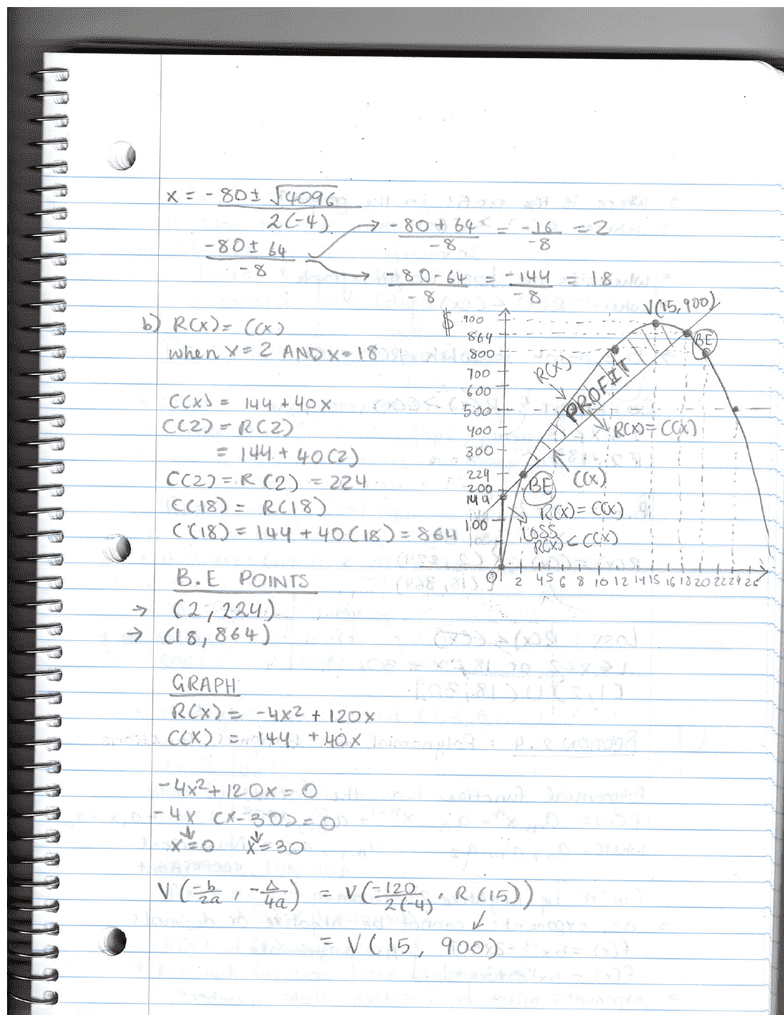 x = -80 ± √4096
2(-4)
-80 ± 64
-8
-80 + 64 = -16 = 2
-8 -8
-80 - 64 = -144 = 18
-8 -8
b) R(x) = C(x)
when x = 2 AND x = 18
C(x) = 144 + 40x
C(2) = R(2)
= 144 + 40(2)
C(2) = R(2) = 224
C(18) = R(18)
C(18) = 144 + 40(18) = 864
B.E POINTS
→ (2, 224)
→ (18, 864)
GRAPH
R(x) = -4x² + 120x
C(x) = 144 + 40x
-4x² + 120x = 0
-4x (x - 30) = 0
x = 0 x = 30
V(-b/2a, -Δ/4a) = V(-120/2(-4), R(15))
= V(15, 900)
V(15, 900)
$
900
864
800
700
600
500
400
300
224
200
144
100
0 2 4 5 6 8 10 12 14 15 16 18 20 22 24 26
R(x)
PROFIT
BE
R(x) = C(x)
C(x)
BE
R(x) = C(x)
LOSS
R(x) < C(x)